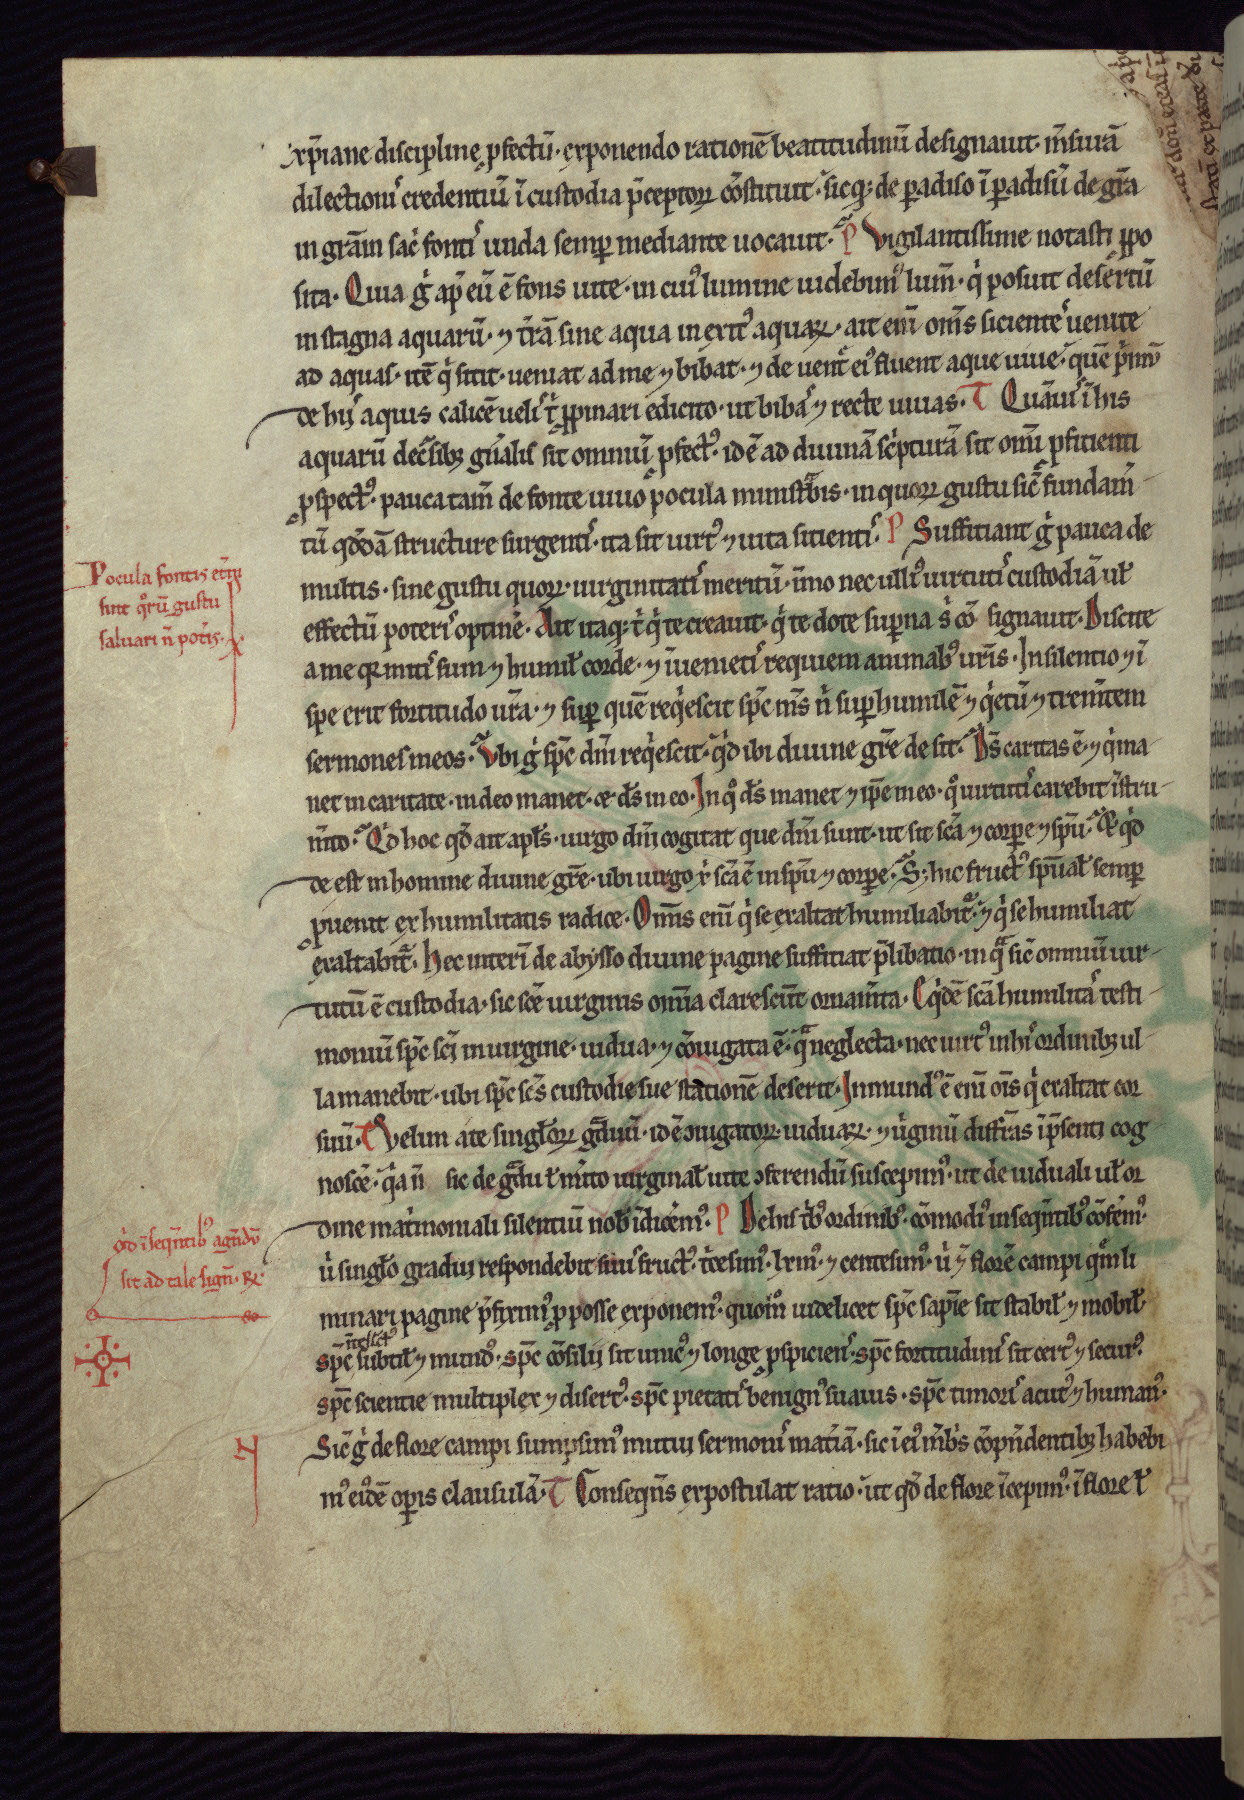 xp̄iane discipline ꝑfectū· exponendo rationē beatitudinū designauit· m̄surā
dilectionis credentiū ī custodia p̄ceptoꝝ cōstituit· sicq; de paradiso ī paradisū de gr̄a
in grām sac̄ fontis unda semꝑ mediante uocauit· P Vigilantissime notasti ꝓpo
sita· Quia ḡ ap̄ eū ē fons uite· in cui᷒ lumine uidebim᷒ lum̄· q̇ posuit desertū
in stagna aquarū· ⁊ t̄rā sine aqua in exit᷒ aquaꝝ· ait enī om̄s sicientes uenite
ad aquas· itē q̇ sitit· ueniat ad me ⁊ bibat· ⁊ de uent̄ ei᷒ fluent aque uiue· quē p̄mū
de hiis aquis calicē uelis t̄ ꝓpinari edicito· ut bibas ⁊ recte uiuas· T Quāuis ī his
aquarū decs̄ibꝫ gn̄alis sit omniū ꝓfect᷒· id ē ad diuinā sc̄pturā sit omī ꝓficienti
ꝓspect᷒· pauca tam̄ de fonte uiuo pocula ministrabis· in quoꝝ gustu sic̄ fundam̄
tū qd̄dā structure surgentis· ita sit uirt᷒ ⁊ uita sitientis· P Suffitiant ḡ pauca de
multis· sine gustu quoꝝ· uirginitatis meritū· īmo nec ulli᷒ uirtutis custodiā uł
effectū poteris optinē· Ait itaq; t̄ q̇ te creauit· q̇ te dote superna s̄ cō signauit· Discite
a me q̄ mitis sum ⁊ humił corde· ⁊ īuenietis requiem animab᷒ ur̄is· In silentio ⁊ ī
spe erit fortitudo ur̄a· ⁊ suꝑ quē req̇escit sp̄c m̄s n̄ suꝑ humilē ⁊ q̇etū ⁊ trem̄tem
sermones meos· Vbi ḡ sp̄c dn̄i req̇escit· q̇d ibi diuine gr̄e de sit· Ds̄ caritas ē· ⁊ q̇ ma
net in caritate· in deo manet· et ds̄ in eo· In q̊ ds̄ manet ⁊ ip̄e in eo· q̊ uirtutis carebit īstru
m̄to· Qd hoc qd̄ ait apłs· uirgo dn̄i cogitat que dn̄i sunt· ut sit sc̄a ⁊ corꝑe ⁊ sp̄u· q̇d
de est in homine diuine gr̄e· ubi uirgo sc̄a ē in sp̄u ⁊ corꝑe· S; hic fruct᷒ sp̄uał semꝑ
ꝓuenit ex humilitatis radice· Om̄is enī q̇ se exaltat humiliabit̄· ⁊ q̇ se humiliat
exaltabit̄· Hec interī de abysso diuine pagine suffitiat p̄libatio· in q̄ sic̄ omniū uir
tutū ē custodia· sic sc̄e uirginis om̄ia clarescūt ornam̄ta· Sq̇dē sc̄a humilitas testi
moniū sp̄c sc̄i in uirgine· uidua ⁊ cōiugata ē· q̄ neglecta· nec uirt᷒ in his ordinibꝫ ul
la manebit· ubi sp̄c sc̄s custodie sue stationē deserit· Inmund᷒ ē enī oīs q̇ exaltat cor
suū· T Velim a te singłoꝝ gᵃduū· id ē ꝯiugatoꝝ· uiduaꝝ· ⁊ u̇ginū diffr̄as īp̄senti cog
noscē· q̄a n̄ sic de gᵃdu ł m̄ito uirginał uite ꝯferendū suscepim᷒· ut de uiduali uł or
dine mat̄moniali silentiū nob̄ īdicēm᷒· P De his t̄b᷒ ordinib᷒· cōmodi᷒ in seqn̄tib᷒ cōfēm᷒·
u̇ singło gradui respondebit suus fruct᷒· t̄cesim᷒· lxm᷒· ⁊ centesim᷒· u̇ ⁊ florē campi q̄m li
minari pagine p̄fixim᷒ ꝓ posse exponem᷒· quom̊ uidelicet sp̄c sapīe sit stabił ⁊ mobił·
ītellect᷒
sp̄c subtił ⁊ mund᷒· sp̄c cōsilii sit unic᷒ ⁊ longe ꝓspiciens· sp̄c fortitudinis sit cert᷒ ⁊ secur᷒·
sp̄c scientie multiplex ⁊ disert᷒· sp̄c pietatis benign᷒ suauis· sp̄c timoris acut᷒ ⁊ human᷒·
Sic̄ ḡ de flore campi sumpsim᷒ mutui sermonis mat̄iā· sic ī ei᷒ m̄bris cōpn̄dentibꝫ habebi
m᷒ ei᷒dē oꝑis clausulā· T Conseqn̄s expostulat ratio· ut qd̄ de flore īcepim᷒· ī flore ł
Pocula fontis etn̄i
sine q̊rū gustu
saluari n̄ potis·
Qd īseqn̄tib᷒ agn̄dū
sit ad tale sign̄·
N